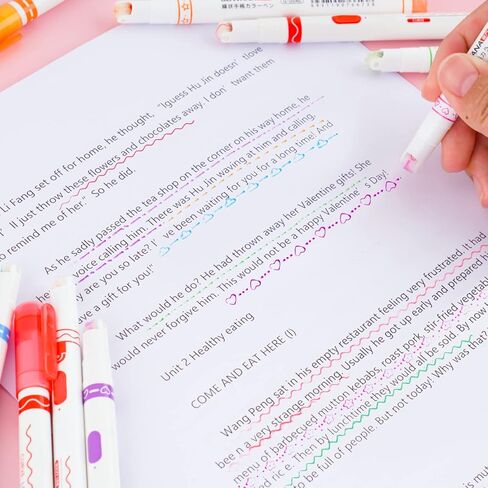 線状手帳カラーペン
Li Fang set off for home, he thought, "Iguess Hu Jin doesn' tlove
' ll just throw these flowers and chocolates away. I don' twant them
o remind me of her" So he did.
As he sadly passed the tea shop on the corner on his way home, he
voice calling him. There was Hu Jin waving at him and calling.
y are you so late? I' ve been waiting for you for a long time! And
ve a gift for you!"
What would he do? He had thrown away her Valentine gifts! She
would never forgive him. This would not be a happy Valentine' s Day!
Unit 2 Healthy eating
COME AND EAT HERE (I)
Wang Peng sat in his empty restaurant feeling very frustrated. It had
bee n a very strange morning. Usually he got up early and prepared
menu of barbecued mutton kebabs, roast pork, stir-fried vegetabl
ed ric e. Then by lunchtime they would all be sold. By now
to be full of people. But not today! Why was that?